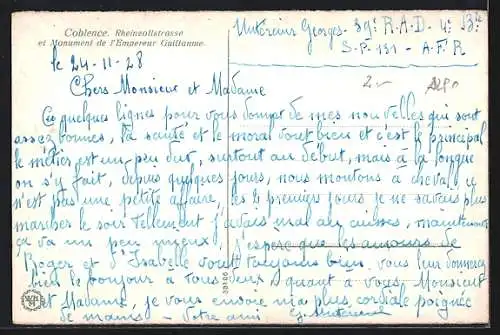 Coblence. Rheinzollstrasse
et Monument de l'Empereur Guillaume
Georges - 39e R.A.D - 4e B
S.P. 131 - A.F.R
le 24-11-28
Chers Monsieur et Madame
Ces quelques lignes pour vous donner de mes nouvelles qui sont
assez bonnes, la santé et le moral vont bien et c'est le principal
le métier est un peu dur, surtout au début, mais à la longue
on s'y fait, depuis quelques jours, nous montons à cheval, ce
n'est pas une petite affaire, les 2 premiers jours je ne savais plus
marcher le soir tellement j'avais mal aux cuisses, maintenant
ça va un peu mieux. J'espère que les amours de
Roger et d'Isabelle vont toujours bien, vous leur donnerez
bien le bonjour à tous deux. Quant à vous, Monsieur
et Madame, je vous envoie ma plus cordiale poignée
de mains - Votre ami